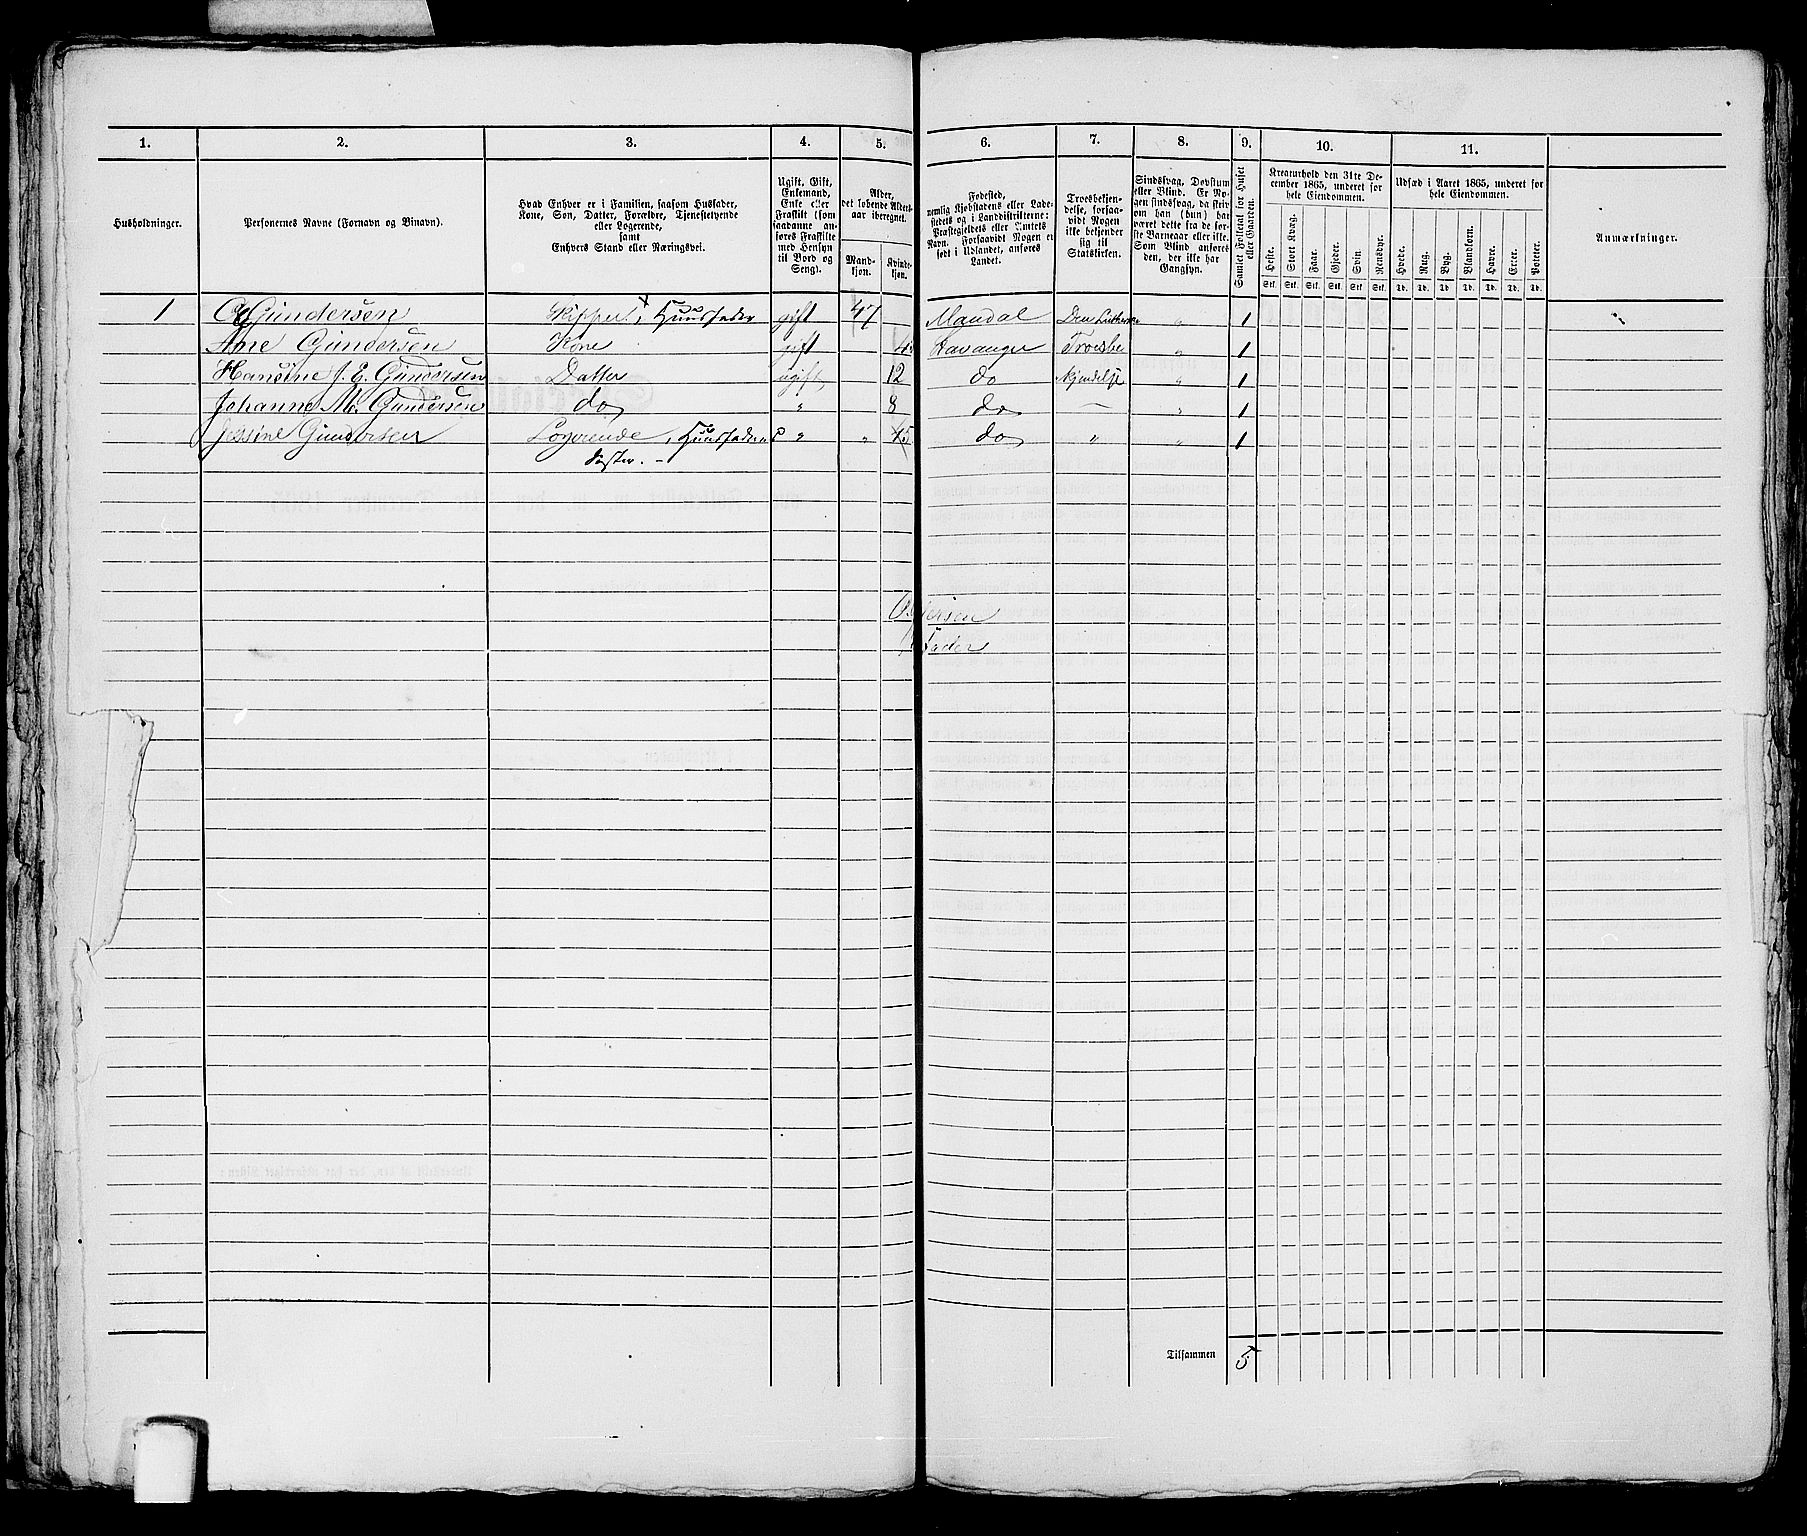 1. 2. 3. 4. 5. 6. 7. 8. 9. 10. 11.
Husholdninger.
Personernes Navne (Fornavn og Binavn).
Hvad Enhver er i Familien, saasom Husfader,
Kone, Søn, Datter, Forældre, Tjenestetyende
eller Logerende,
samt
Enhvers Stand eller Næringsvei.
Ugift, Gift,
Enkemand,
Enke eller
Fraskilt (som
saadanne an-
føres Fraskilte
med Hensyn
til Bord og
Seng).
Alder,
det løbende Alders-
aar iberegnet.
Mand-
kjøn.
Kvinde-
kjøn.
Fødested,
nemlig Kjøbstadens eller Lade-
stedets og i Landdistrikterne:
Præstegjeldets eller Amtets
Navn. Forsaavidt Nogen er
født i Udlandet, anføres
Landet.
Troesbekjen-
delse, forsaa-
vidt Nogen
ikke bekjender
sig til
Statskirken.
Sindssvag, Døvstum
eller Blind. Er No-
gen sindssvag, da skriv
om han (hun) har
været dette fra de før-
ste Barneaar eller ikke.
Som Blind anføres
den, der ikke har
Gangsyn.
Samlet Folketal for Huset
eller Gaarden.
Kreaturhold den 31te De-
cember 1865, underet for
hele Eiendommen.
Heste. Stort Kvæg. Faar. Gjeder. Svin. Rensdyr.
Stk. Stk. Stk. Stk. Stk. Stk.
Udsæd i Aaret 1865, underet for
hele Eiendommen.
Hvede. Rug. Byg. Blandkorn. Havre. Erter. Poteter.
Td. Td. Td. Td. Td. Td. Td.
Anmærkninger.
1 Gundersen Skipper, Huusfader gift 47 Mandal Den Lutherske 1
Ane Gundersen Kone gift Stavanger Troesbe 1
Hansine J. E. Gundersen Datter ugift 12 do kjendelse 1
Johanne M. Gundersen do " 8 do — " 1
Jessine Gundersen Logerende, Huusfaderens " " 45 do " " 1
Søster. —
Tilsammen 5